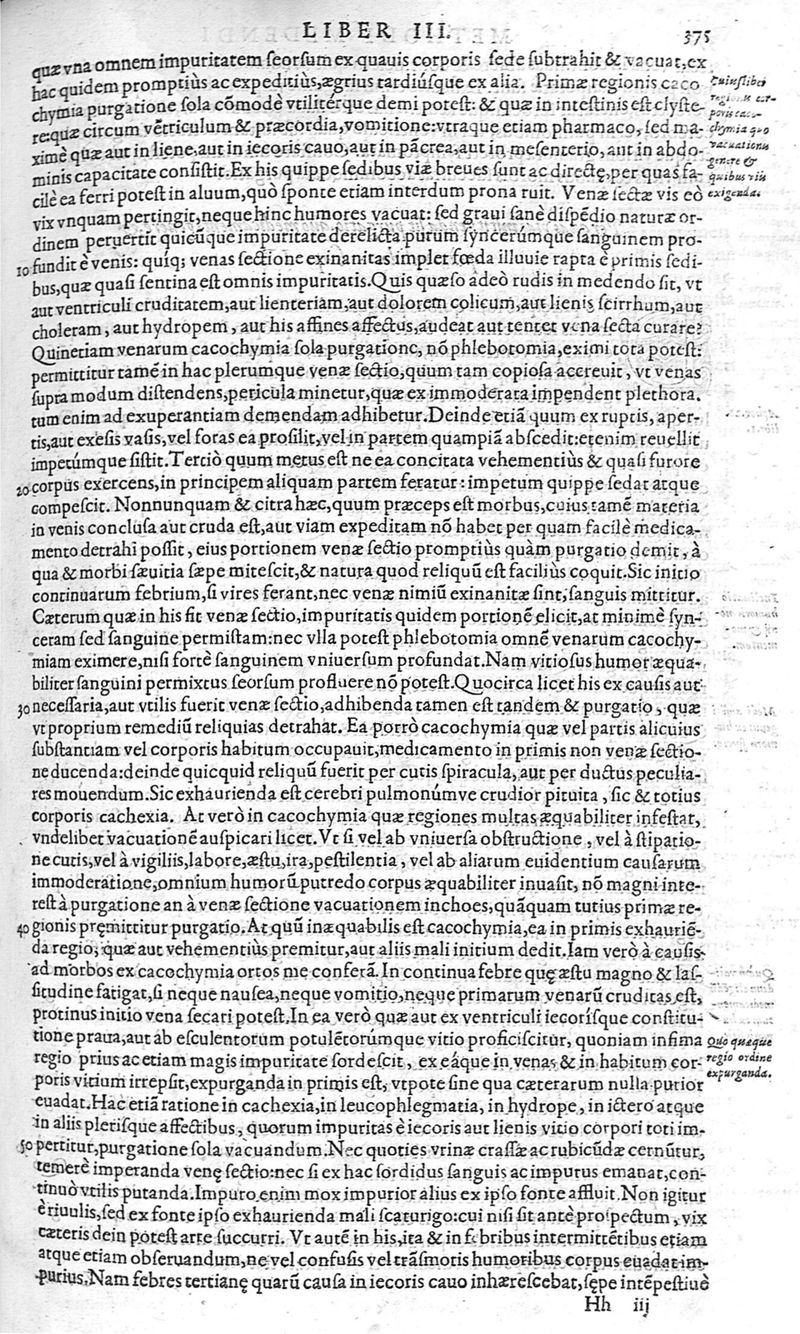 LIBER III.
375
quæ vna omnem impuritatem ſeorſum ex quauis corporis ſede ſubtrahit & vacuat, ex
hac quidem promptiùs ac expeditiùs, ægrius tardiúſque ex alia. Primæ regionis caco
chymia purgatione ſola cõmodè vtilitérque demi poteſt: & quæ in inteſtinis eſt clyſte-
re: quæ circum vẽtriculum & præcordia, vomitione: vtraque etiam pharmaco, ſed ma-
ximè quæ aut in liene, aut in iecoris cauo, aut in pãcrea, aut in meſenterio, aut in abdo-
minis capacitate conſiſtit. Ex his quippe ſedibus viæ breues ſunt ac directę, per quas fa-
cilè ea ferri poteſt in aluum, quò ſponte etiam interdum prona ruit. Venæ ſectæ vis eò
vix vnquam pertingit, neque hinc humores vacuat: ſed graui ſanè diſpẽdio naturæ or-
dinem peruertit quicũque impuritate derelicta purum ſyncerúmque ſanguinem pro-
10 fundit è venis: quiq; venas ſectione exinanitas implet fœda illuuie rapta è primis ſedi-
bus, quæ quaſi ſentina eſt omnis impuritatis. Quis quæſo adeò rudis in medendo ſit, vt
aut ventriculi cruditatem, aut lienteriam, aut dolorem colicum, aut lienis ſcirrhum, aut
choleram, aut hydropem, aut his affines affectus, audeat aut tentet vena ſecta curare?
Quinetiam venarum cacochymia ſola purgatione, nõ phlebotomia, eximi tota poteſt:
permittitur tamẽ in hac plerumque venæ ſectio, quum tam copioſa accreuit, vt venas
ſupra modum diſtendens, pericula minetur, quæ ex immoderata impendent plethora.
tum enim ad exuperantiam demendam adhibetur. Deinde etiã quum ex ruptis, aper-
tis, aut exeſis vaſis, vel foras ea proſilit, vel in partem quampiã abſcedit: etenim reuellit
impetúmque ſiſtit. Tertiò quum metus eſt ne ea concitata vehementiùs & quaſi furore
20 corpus exercens, in principem aliquam partem feratur: impetum quippe ſedat atque
compeſcit. Nonnunquam & citra hæc, quum præceps eſt morbus, cuius tamẽ materia
in venis concluſa aut cruda eſt, aut viam expeditam nõ habet per quam facilè medica-
mento detrahi poſſit, eius portionem venæ ſectio promptiùs quàm purgatio demit, à
qua & morbi ſæuitia ſæpe miteſcit, & natura quod reliquũ eſt faciliùs coquit. Sic initio
continuarum febrium, ſi vires ferant, nec venæ nimiũ exinanitæ ſint, ſanguis mittitur.
Cæterum quæ in his fit venæ ſectio, impuritatis quidem portionẽ elicit, at minimè ſyn-
ceram ſed ſanguine permiſtam: nec vlla poteſt phlebotomia omnẽ venarum cacochy-
miam eximere, niſi fortè ſanguinem vniuerſum profundat. Nam vitioſus humor æqua-
biliter ſanguini permixtus ſeorſum profluere nõ poteſt. Quocirca licet his ex cauſis aut
30 neceſſaria, aut vtilis fuerit venæ ſectio, adhibenda tamen eſt tandem & purgatio, quæ
vt proprium remediũ reliquias detrahat. Ea porrò cacochymia quæ vel partis alicuius
ſubſtantiam vel corporis habitum occupauit, medicamento in primis non venæ ſectio-
ne ducenda: deinde quicquid reliquũ fuerit per cutis ſpiracula, aut per ductus peculia-
res mouendum. Sic exhaurienda eſt cerebri pulmonúmve crudior pituita, ſic & totius
corporis cachexia. At verò in cacochymia quæ regiones multas æquabiliter infeſtat,
vndelibet vacuationẽ auſpicari licet. Vt ſi vel ab vniuerſa obſtructione, vel à ſtipatio-
ne cutis, vel à vigiliis, labore, æſtu, ira, peſtilentia, vel ab aliarum euidentium cauſarum
immoderatione, omnium humorũ putredo corpus æquabiliter inuaſit, nõ magni inte-
reſt à purgatione an à venæ ſectione vacuationem inchoes, quãquam tutius primæ re-
40 gionis pręmittitur purgatio. At quũ inæquabilis eſt cacochymia, ea in primis exhauriẽ-
da regio, quæ aut vehementiùs premitur, aut aliis mali initium dedit. Iam verò à cauſis
ad morbos ex cacochymia ortos me conferã. In continua febre quę æſtu magno & laſ-
ſitudine fatigat, ſi neque nauſea, neque vomitio, neque primarum venarũ cruditas eſt,
protinus initio vena ſecari poteſt. In ea verò quæ aut ex ventriculi iecoríſque conſtitu-
tione praua, aut ab eſculentorum potulẽtorúmque vitio proficiſcitur, quoniam infima
regio prius ac etiam magis impuritate ſordeſcit, ex eáque in venas & in habitum cor-
poris vitium irrepſit, expurganda in primis eſt, vtpote ſine qua cæterarum nulla purior
euadat. Hac etiã ratione in cachexia, in leucophlegmatia, in hydrope, in ictero atque
in aliis pleriſque affectibus, quorum impuritas è iecoris aut lienis vitio corpori toti im-
50 pertitur, purgatione ſola vacuandum. Nec quoties vrinæ craſſæ ac rubicũdæ cernũtur,
temerè imperanda venę ſectio: nec ſi ex hac ſordidus ſanguis ac impurus emanat, con-
tinuò vtilis putanda. Impuro enim mox impurior alius ex ipſo fonte affluit. Non igitur
è riuulis, ſed ex fonte ipſo exhaurienda mali ſcaturigo: cui niſi ſit antè proſpectum, vix
cæteris dein poteſt arte ſuccurri. Vt autẽ in his, ita & in febribus intermittẽtibus etiam
atque etiam obſeruandum, ne vel confuſis vel trãſmotis humoribus corpus euadat im-
purius. Nam febres tertianę quarũ cauſa in iecoris cauo inhæreſcebat, ſępe intẽpeſtiuè
Hh iij
Cuiuſlibet
regionis cor-
poris caco-
chymia quo
vacuationis
genere &
quibus viis
exigenda.
Quo quæque
regio ordine
expurganda.